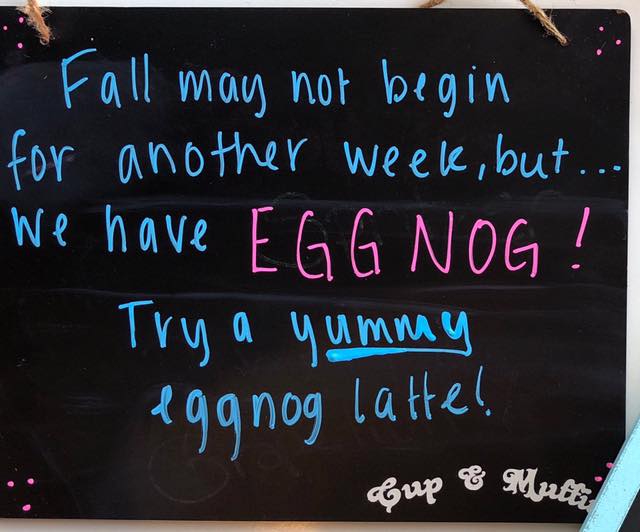 Fall may not begin
for another week, but...
We have EGG NOG!
Try a yummy
eggnog latte!
Cup & Muffi